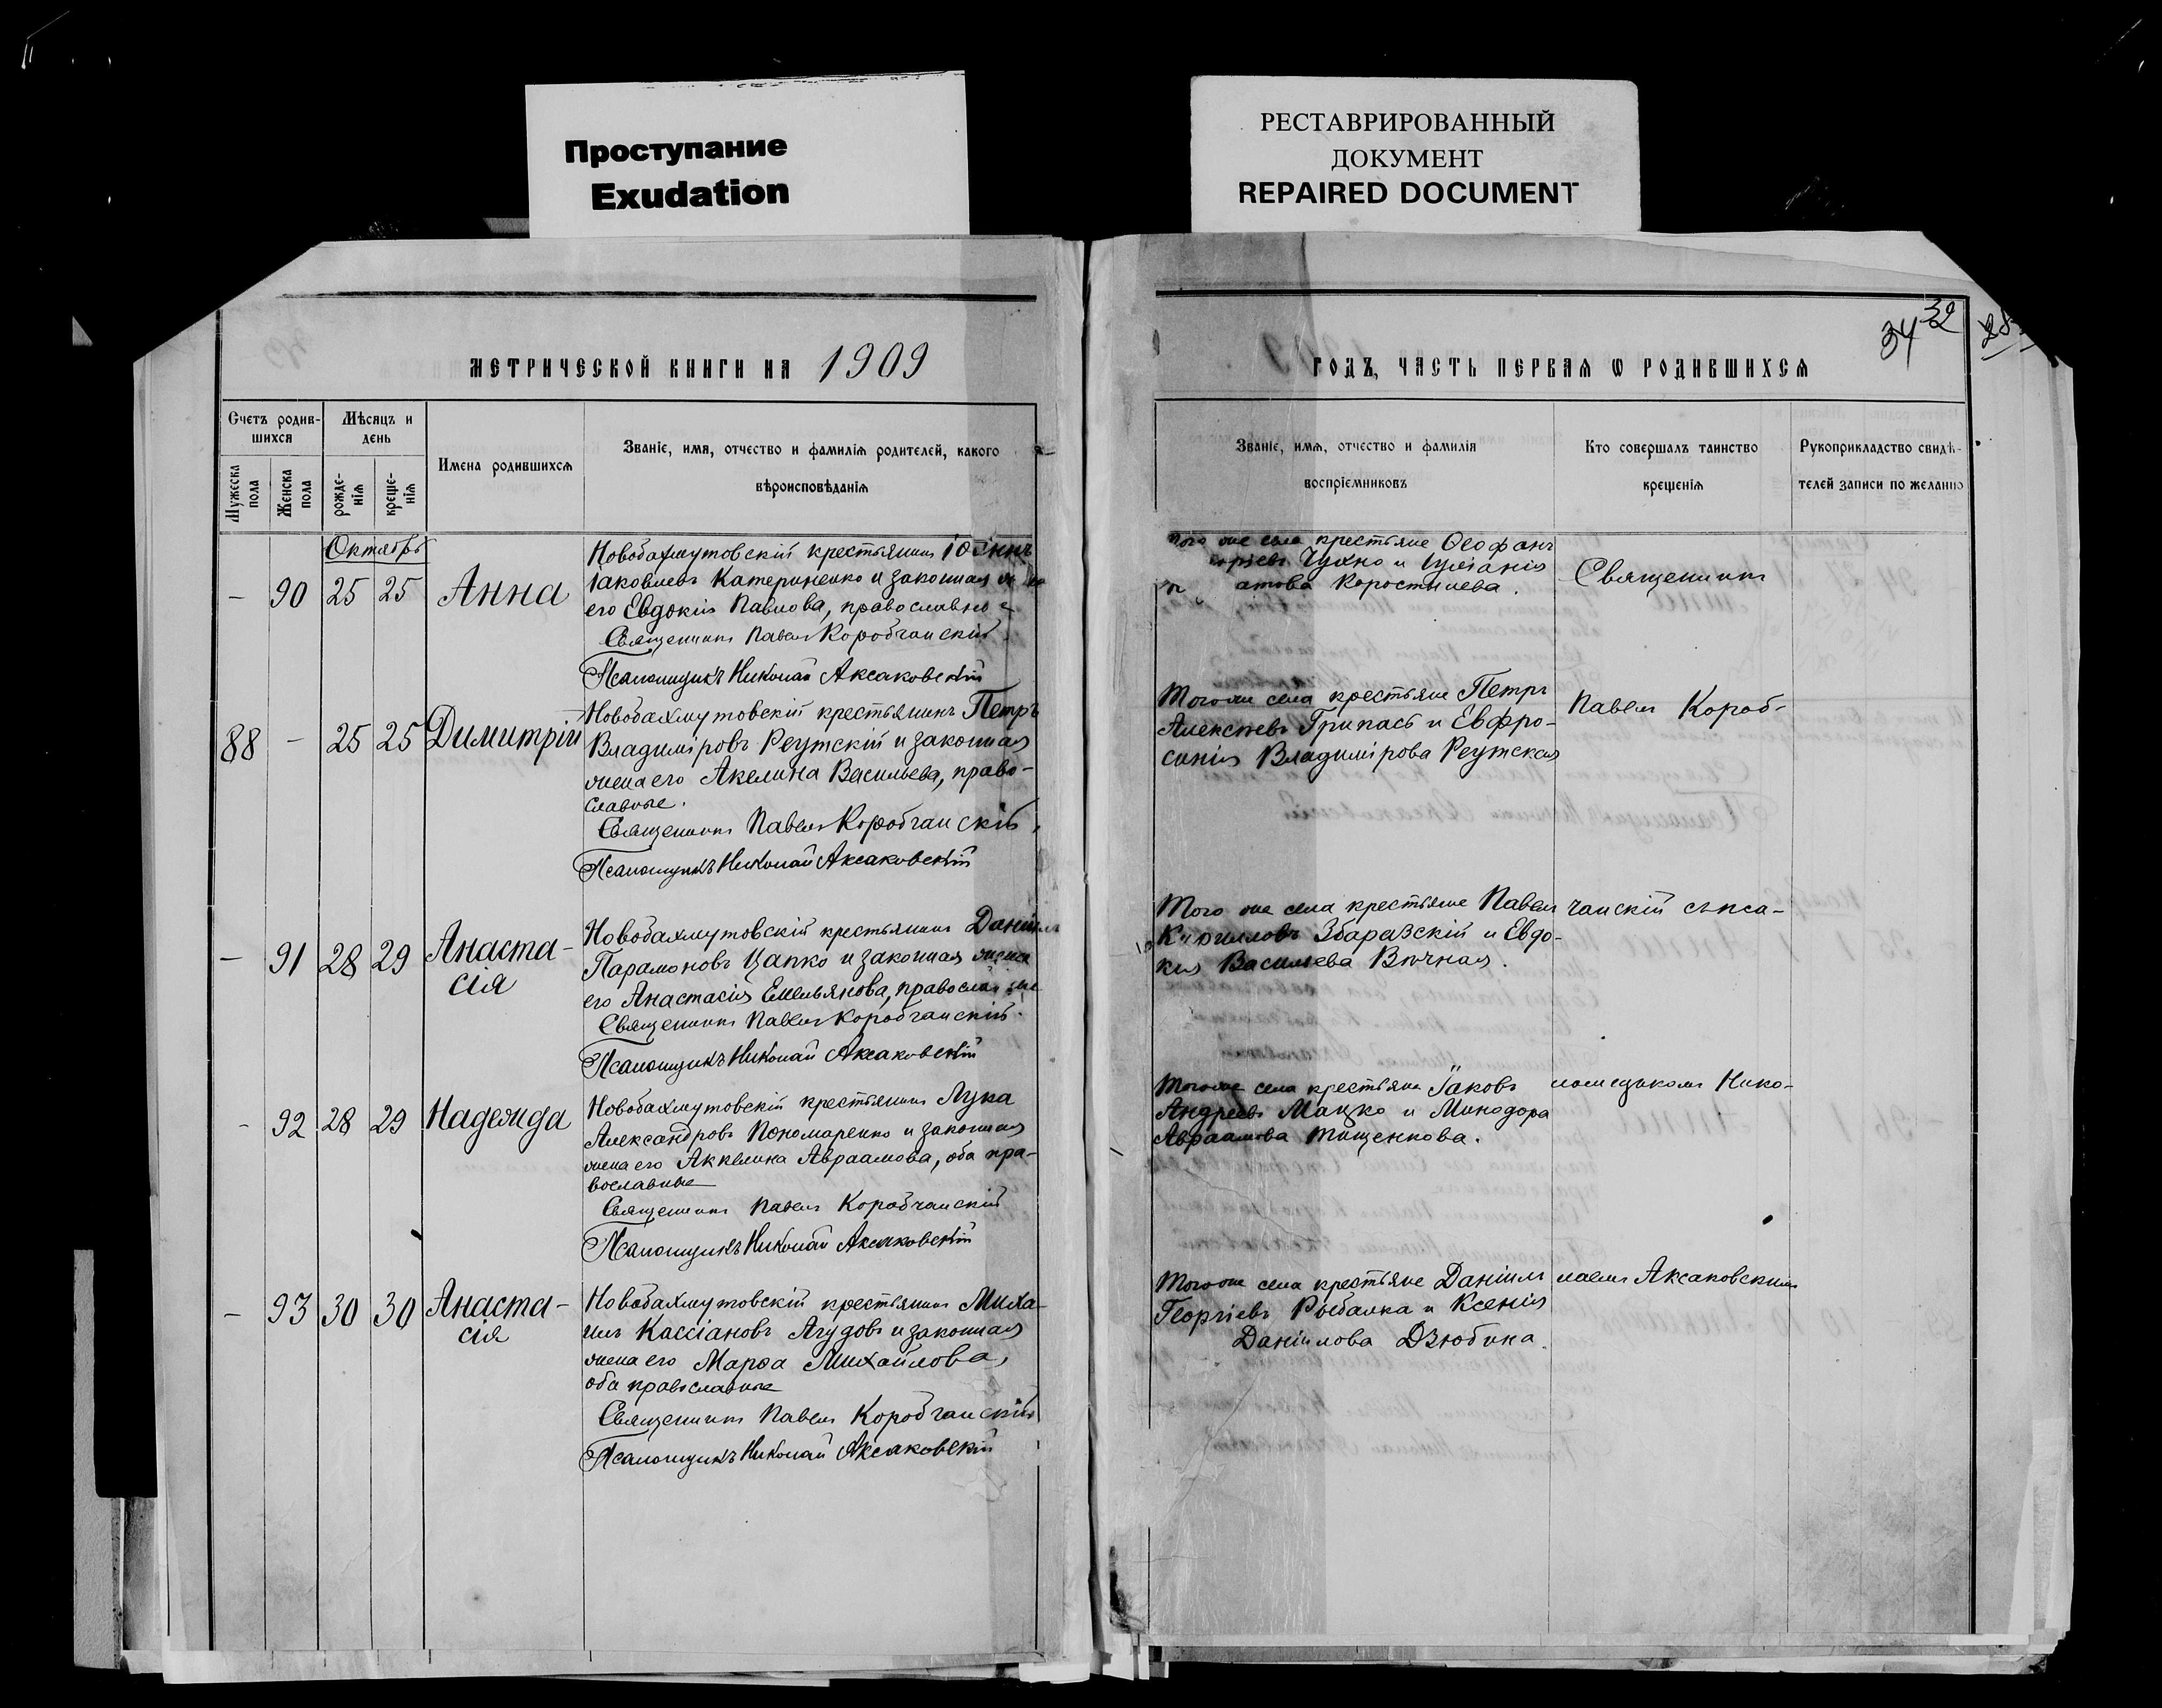 Проступание
Exudation
РЕСТАВРИРОВАННЫЙ
ДОКУМЕНТ
REPAIRED DOCUMENT
МЕТРИЧЕСКОЙ КНИГИ НА 1909
Счетъ родив-
шихся
Мѣсяцъ и
день
Мужеска
пола
Женска
пола
рожде-
нія
креще-
нія
Имена родившихся
Званіе, имя, отчество и фамилія родителей, какого
вѣроисповѣданія
Октябрь
– 90 25 25 Анна
Новобахмутовскій крестьянинъ Іоаннъ
Іаковлевъ Катериненко и законная
его Евдокія Павлова, православные
Священникъ Павелъ Коробчанскій
Псаломщикъ Николай Аксаковскій
88 – 25 25 Димитрій
Новобахмутовскій крестьянинъ Петръ
Владиміровъ Реутскій и законная
жена его Акелина Васильева, право-
славные.
Священникъ Павелъ Коробчанскій
Псаломщикъ Николай Аксаковскій
– 91 28 29 Анаста-
сія
Новобахмутовскій крестьянинъ Даніилъ
Парамоновъ Цапко и законная жена
его Анастасія Емельянова, православные
Священникъ Павелъ Коробчанскій.
Псаломщикъ Николай Аксаковскій
– 92 28 29 Надежда
Новобахмутовскій крестьянинъ Лука
Александровъ Пономаренко и законная
жена его Акклина Авраамова, оба пра-
вославные
Священникъ Павелъ Коробчанскій
Псаломщикъ Николай Аксаковскій
– 93 30 30 Анаста-
сія
Новобахмутовскій крестьянинъ Миха-
илъ Кассіановъ Агудовъ и законная
жена его Марѳа Михайлова,
оба православные
Священникъ Павелъ Коробчанскій
Псаломщикъ Николай Аксаковскій
34 32 28
ГОДЪ, ЧАСТЬ ПЕРВАЯ Ѡ РОДИВШИХСЯ
Званіе, имя, отчество и фамилія
воспріемниковъ
Кто совершалъ таинство
крещенія
Рукоприкладство свидѣ-
телей записи по желанію
того же села крестьяне Ѳеофанъ
Чухно и Іуліанія
Коростылева.
Того же села крестьяне Петръ
Алексѣевъ Грипасъ и Евфро-
синія Владимірова Реутская
Того же села крестьяне Павелъ
Кирилловъ Збаразскій и Евдо-
кия Васильева Вѣчная.
Того же села крестьяне Іаковъ
Андреевъ Мацко и Минодора
Авраамова Тищенкова.
Того же села крестьяне Даніилъ
Георгіевъ Рыбалка и Ксенія
Даніилова Дзюбина.
Священникъ
Павелъ Короб-
чанскій съ пса-
ломщикомъ Нико-
лаемъ Аксаковскимъ